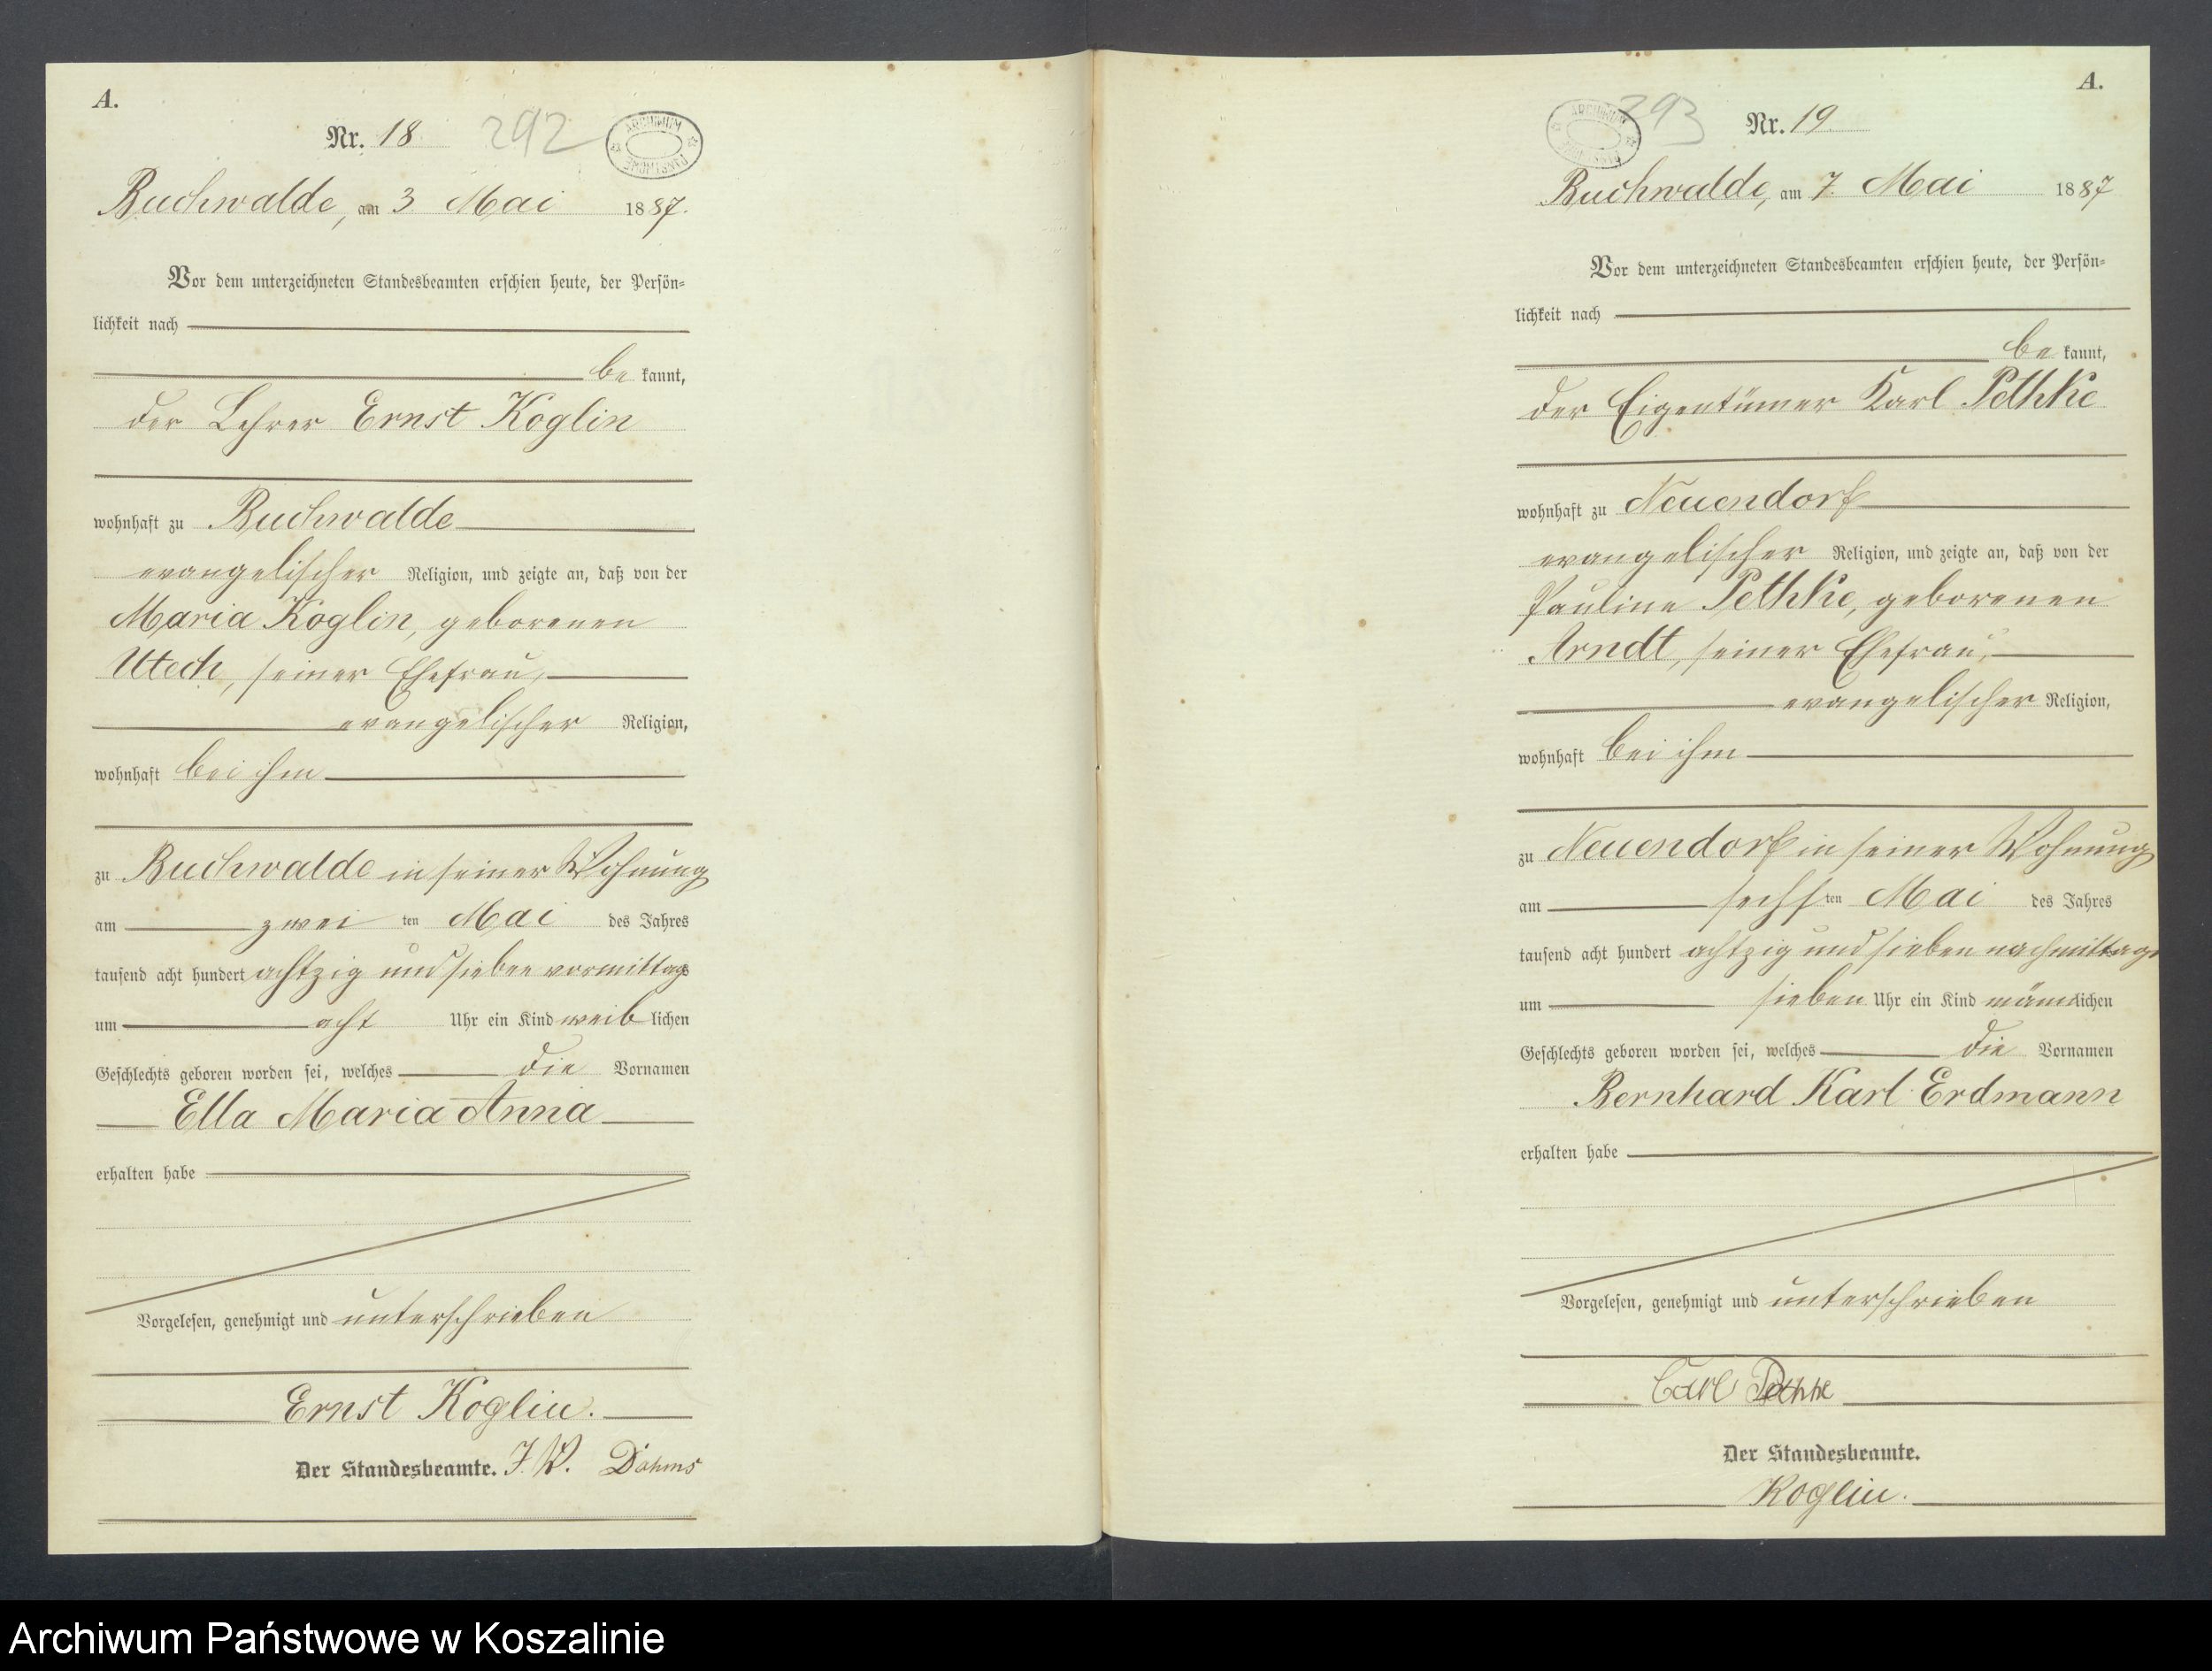 A.
Nr. 18. 292
ARCHIWUM PAŃSTWOWE
Buchwalde, am 3 Mai 1887.
Vor dem unterzeichneten Standesbeamten erschien heute, der Persön=
lichkeit nach
be kannt,
der Lehrer Ernst Koglin
wohnhaft zu Buchwalde
evangelischer Religion, und zeigte an, daß von der
Maria Koglin, geborenen
Utech, seiner Ehefrau,
evangelischer Religion,
wohnhaft bei ihm
zu Buchwalde in seiner Wohnung
am zwei ten Mai des Jahres
tausend acht hundert achtzig und sieben vormittags
um acht Uhr ein Kind weib lichen
Geschlechts geboren worden sei, welches die Vornamen
Ella Maria Anna
erhalten habe
Vorgelesen, genehmigt und unterschrieben
Ernst Koglin.
Der Standesbeamte. J. V. Dahms
A.
293 Nr. 19.
Buchwalde, am 7. Mai 1887
Vor dem unterzeichneten Standesbeamten erschien heute, der Persön=
lichkeit nach
be kannt,
der Eigentümer Karl Pethke
wohnhaft zu Neuendorf
evangelischer Religion, und zeigte an, daß von der
Pauline Pethke, geborenen
Arndt, seiner Ehefrau,
evangelischer Religion,
wohnhaft bei ihm
zu Neuendorf in seiner Wohnung
am sechs ten Mai des Jahres
tausend acht hundert achtzig und sieben nachmittags
um sieben Uhr ein Kind männlichen
Geschlechts geboren worden sei, welches die Vornamen
Bernhard Karl Erdmann
erhalten habe
Vorgelesen, genehmigt und unterschrieben
Carl Pethke
Der Standesbeamte.
Koglin.
Archiwum Państwowe w Koszalinie